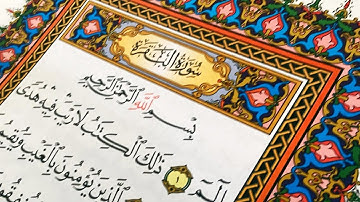 سُورَةُ الْبَقَرَةِ
بِسْمِ اللَّهِ الرَّحْمَٰنِ الرَّحِيمِ
الٓمٓ ١ ذَٰلِكَ الْكِتَابُ لَا رَيْبَ فِيهِ هُدًى
الَّذِينَ يُؤْمِنُونَ بِالْغَيْبِ